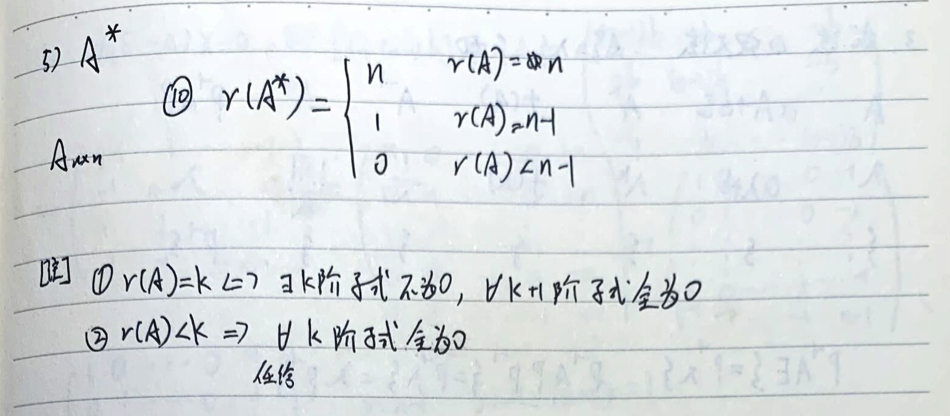 5) A*
⑩ r(A*) = { n r(A)=n
1 r(A)=n-1
0 r(A)<n-1
A n×n
[注] ① r(A)=k <=> ∃ k阶子式不为0, ∀ k+1阶子式全为0
② r(A)<k => ∀ k 阶子式全为0
任给